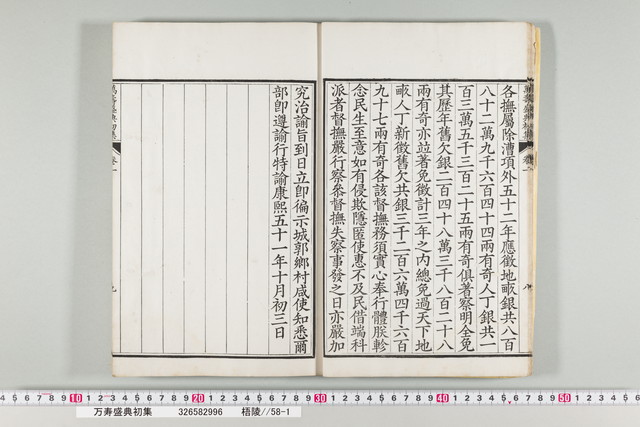 各撫屬除漕項外五十二年應徵地畝銀共八百
八十二萬九千六百四十四兩有奇人丁銀共一
百三萬五千三百二十五兩有奇俱著察明全免
其歷年舊欠銀二百四十八萬三千八百二十八
兩有奇亦竝著免徵計三年之內總免過天下地
畝人丁新徵舊欠共銀三千二百六萬四千六百
九十七兩有奇各該督撫務須實心奉行體朕軫
念民生至意如有侵欺隱匿使惠不及民借端科
派者督撫嚴行察叅督撫失察事發之日亦嚴加
究治諭旨到日立即徧示城郭鄉村咸使知悉爾
部即遵諭行特諭康熙五十一年十月初三日
萬壽盛典初集
卷一
九
10 20 30 40 50
万寿盛典初集 326582996 梧陵//58-1